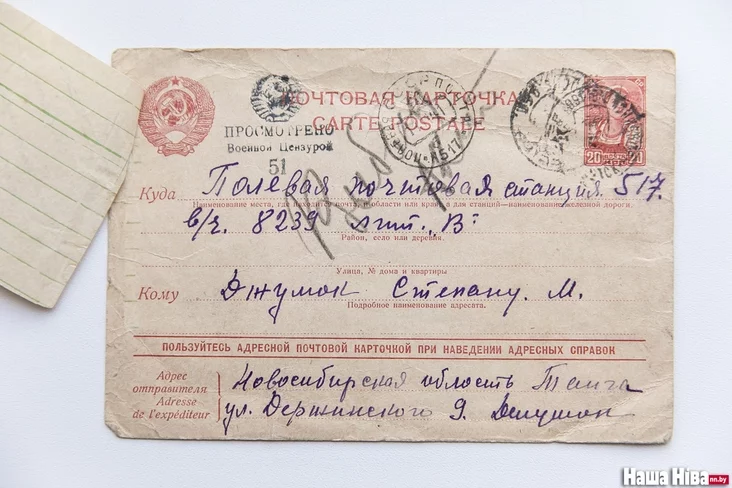 ПОЧТОВАЯ КАРТОЧКА
CARTE POSTALE
ПРОСМОТРЕНО
Военной Цензурой
51
20 20
Куда Полевая почтовая станция 517.
Наименование места, где находится почта, и области или края, а для станций—наименование железной дороги.
в/ч. 8239 лит. „В"
Район, село или деревня.
Улица, № дома и квартиры
Кому Джумок Степану. М.
Подробное наименование адресата.
ПОЛЬЗУЙТЕСЬ АДРЕСНОЙ ПОЧТОВОЙ КАРТОЧКОЙ ПРИ НАВЕДЕНИИ АДРЕСНЫХ СПРАВОК
Адрес отправителя
Adresse de l'expéditeur
Новосибирская область Тайга
ул. Держинского 9. Джумок
Наша Ніва nn.by